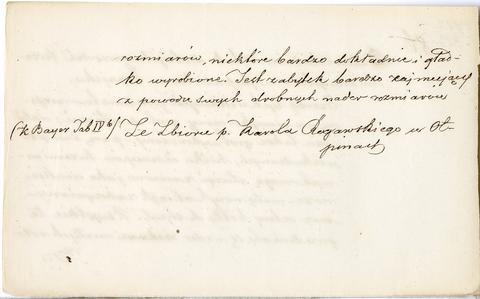 rozmiarów, niektóre bardzo dokładnie i gład-
ko wyrobione. Jest zabytek bardzo zajmujący
z powodu swych drobnych nader rozmiarów
(k Bayer Tab IV 6) Ze Zbioru p. Karola Rogawskiego w Ol-
pinach